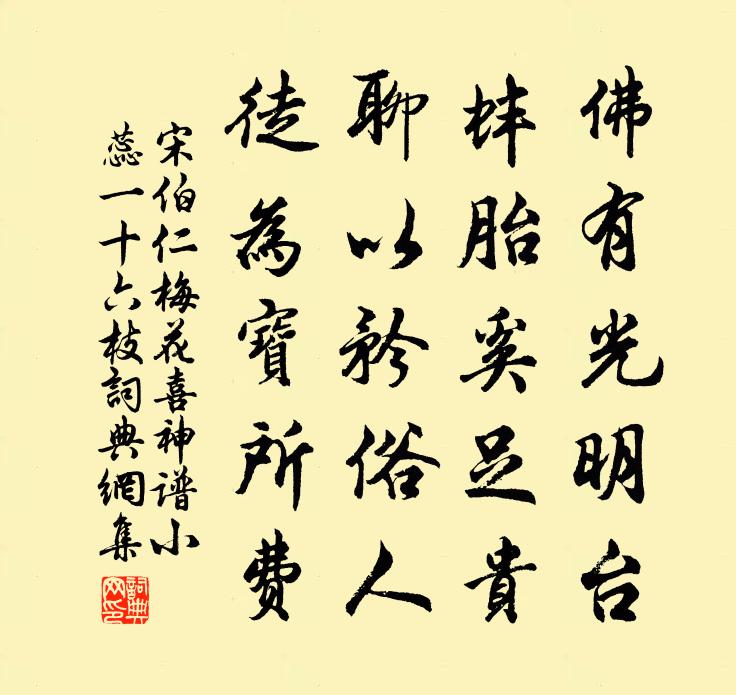 佛有光明台
蚌胎奚足貴
聊以矜俗人
徒為寶所費
宋伯仁梅花喜神谱小
蕊一十六枝詞典網集
詞典
网印